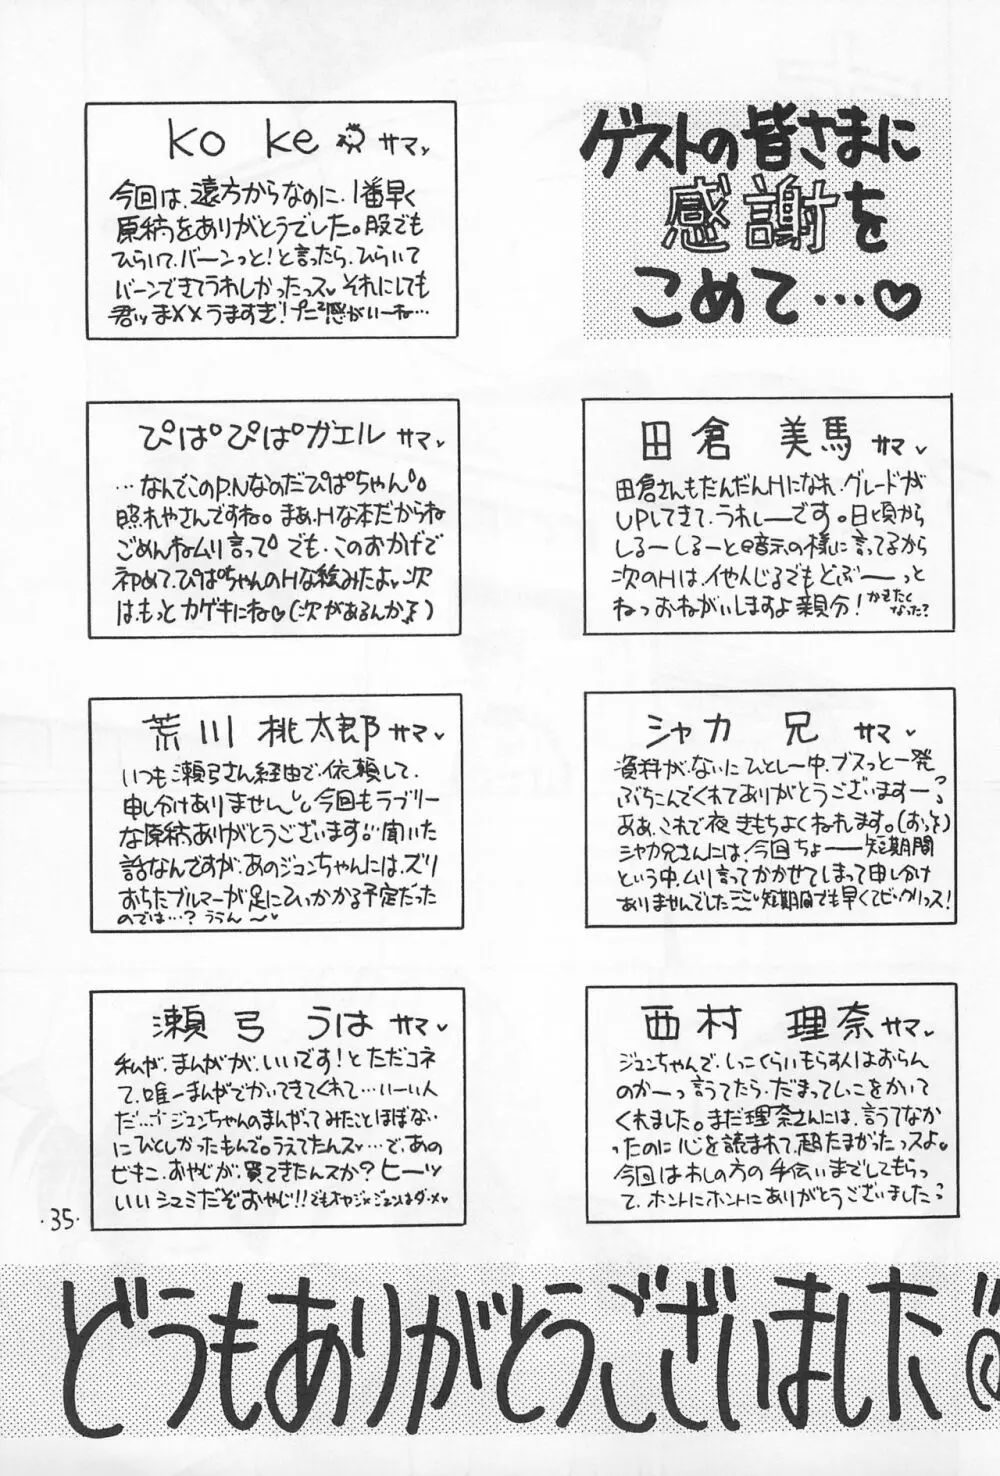 ゲストの皆さまに
感謝を
こめて…♡
ko ke サマ
今回は、遠方からなのに、1番早く
原稿をありがとうでした。服でも
ひらいて、バーンっと!と言ったら、ひらいて
バーンできてうれしかったっス。それにしても
うますぎ!プニプニ感がいーね…
田倉 美馬 サマ
田倉さんもだんだんHになれ、グレードが
UPしてきて、うれしーです。日頃から
しるーしるーと暗示の様に言ってるから
ねっおねがいしますよ親分!かせたくなった?
ぴぱぴぱガエル サマ
…なんでこのP.Nなのだぴぱちゃん
照れやさんですね。まぁ、Hな本だからね
ごめんねムリ言って でも、このおかげで
初めて、ぴぱちゃんのHな絵みたよ 次
は、もっとカゲキにね♡(次があるんか)
シャカ 兄 サマ
資料が、ないにひとしー中、ブスっと一発
ぶちこんでくれてありがとうございますー
ああ、これで夜きもちよくねれます。(おっと)
シャカ兄さんには、今回ちょーー短期間
という中、ムリ言ってかかせてしまって申し分け
ありませんでした 短期間でも早くてビックリっス!
荒川 桃太郎 サマ
いつも瀬弓さん経由で、依頼して、
申し分けありません 今回もラブリー
な原稿ありがとうございます 聞いた
話なんですが、あのジュンちゃんには、ズリ
おちたブルマーが足にひっかかる予定だった
のでは…?ううん〜
西村 理奈 サマ
ジュンちゃんで、しっこくらいもらす人はおらん
のかーっ言うてたら、だまってしっこをかいて
くれました。まだ理奈さんには、言うてなか
ったのに心を読まれて、超たまがたっスよ。
今回はわしの方の手伝いまでしてもらっ
て、ホントにホントにありがとうございました
瀬弓 うは サマ
私が、まんがが、いいです!とただコネ
て、唯一まんがでかいてきてくれて…いーい人
だ… ジュンちゃんのまんがってみたことほぼない
にひとしかったもんで。うえてたんスッ…で、あの
ビキニ、おやじが、買ってきたんスか?ヒーッ
いいシュミだぞおやじ!!でもオヤジ×ジュンはダ・メ
・35・
どうもありがとうございました